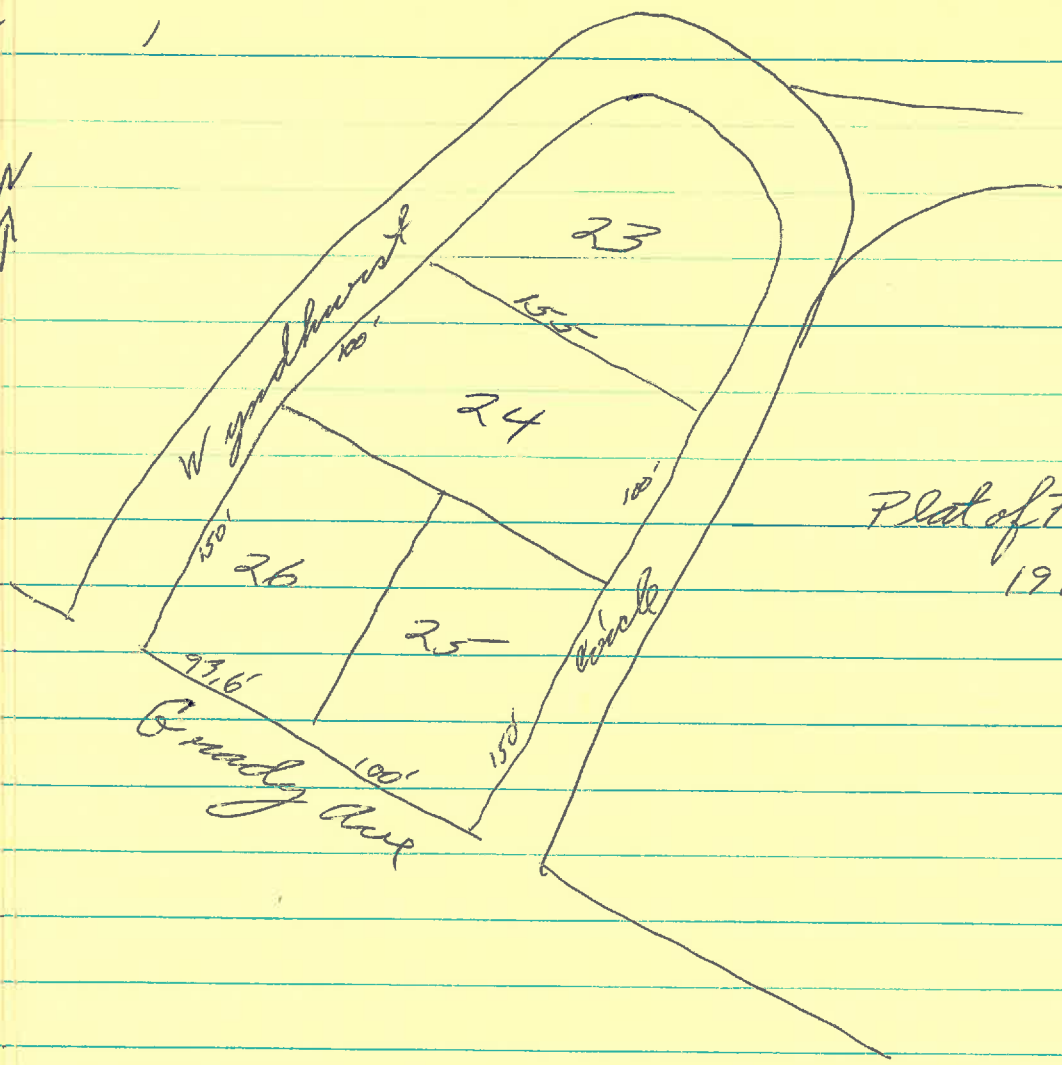 N
23
155
Wyndhurst
100'
24
100'
Plat of
19
150'
26
25
Circle
93.6'
150'
100'
Grady Ave